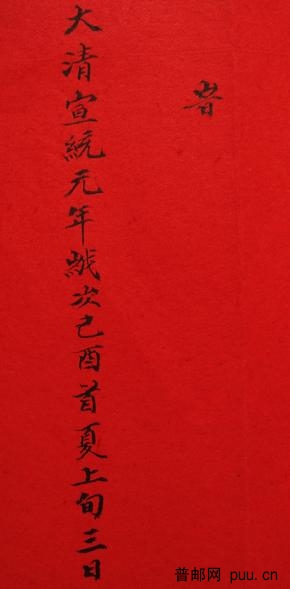 者
大清宣統元年歲次己酉首夏上旬三日
普邮网 puu.cn